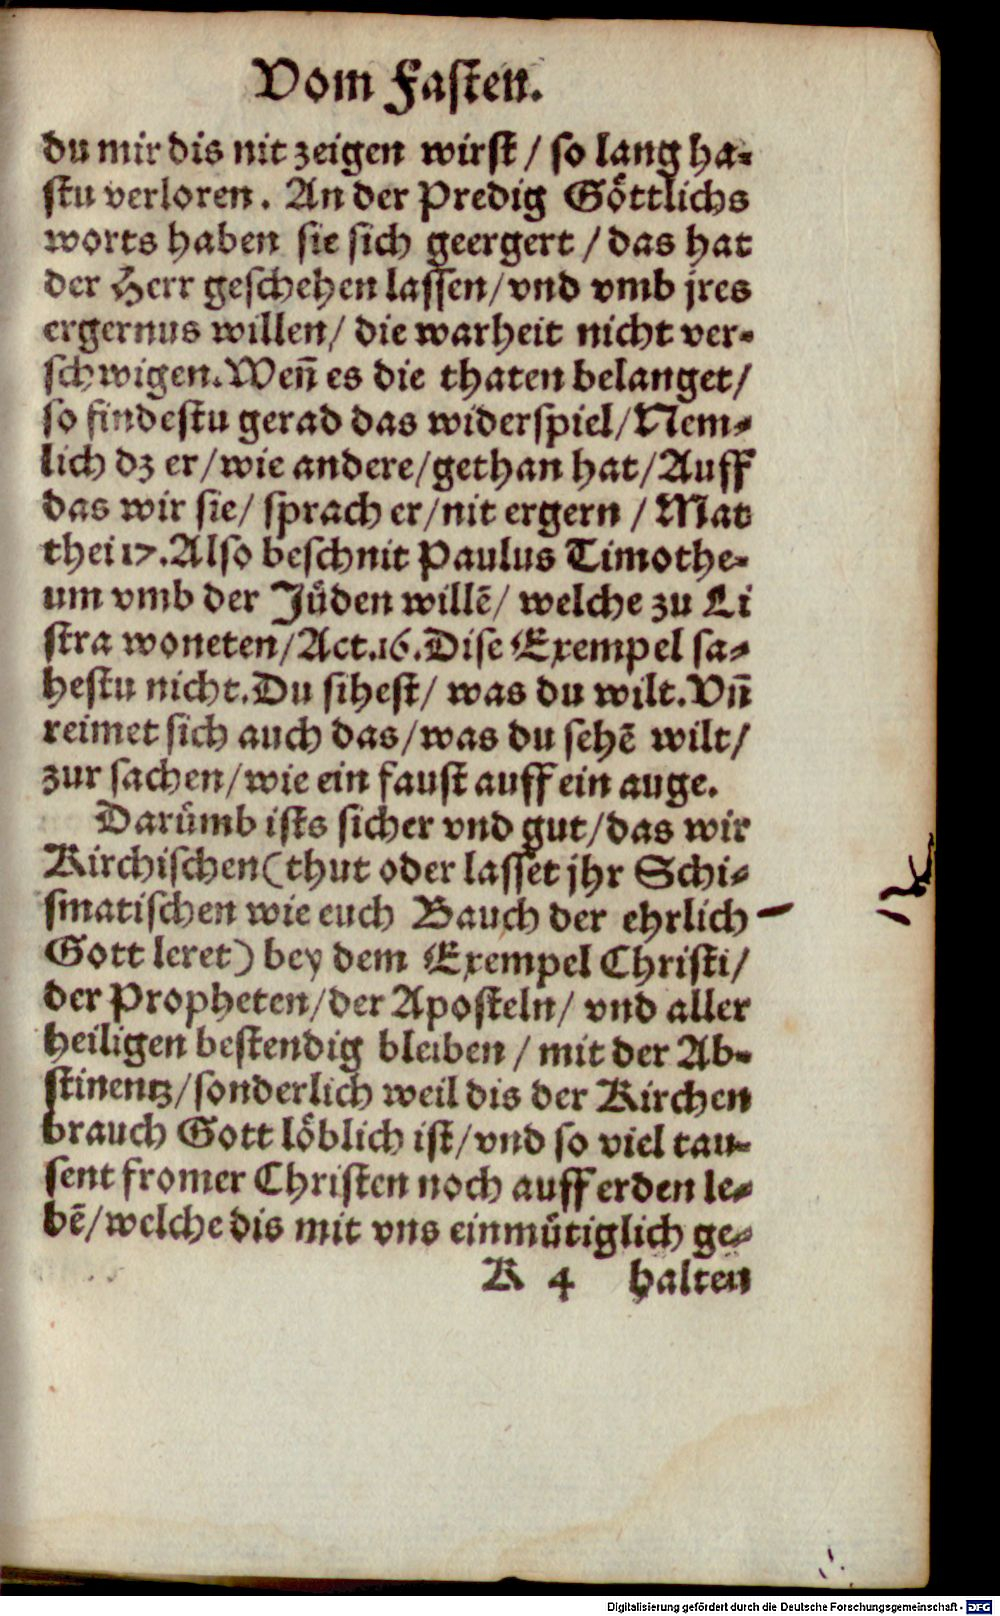 Vom Fasten.
du mir dis nit zeigen wirst / so lang ha-
stu verloren. An der Predig Göttlichs
worts haben sie sich geergert / das hat
der Herr geschehen lassen/ vnd vmb jres
ergernus willen/ die warheit nicht ver-
schwigen. Weñ es die thaten belanget/
so findestu gerad das widerspiel/ Nem-
lich dz er/ wie andere/ gethan hat/ Auff
das wir sie/ sprach er/ nit ergern / Mat
thei 17. Also beschnit Paulus Timothe-
um vmb der Jüden willē/ welche zu Li
stra woneten/ Act. 16. Dise Exempel sa-
hestu nicht. Du sihest/ was du wilt. Vñ
reimet sich auch das/ was du sehē wilt/
zur sachen/ wie ein faust auff ein auge.
Darümb ists sicher vnd gut/ das wir
Kirchischen (thut oder lasset jhr Schi-
smatischen wie euch Bauch der ehrlich
Gott leret) bey dem Exempel Christi/
der Propheten/ der Aposteln/ vnd aller
heiligen bestendig bleiben / mit der Ab-
stinentz/ sonderlich weil dis der Kirchen
brauch Gott löblich ist/ vnd so viel tau-
sent fromer Christen noch auff erden le-
bē/ welche dis mit vns einmütiglich ge-
K 4 halten
Digitalisierung gefördert durch die Deutsche Forschungsgemeinschaft - DFG